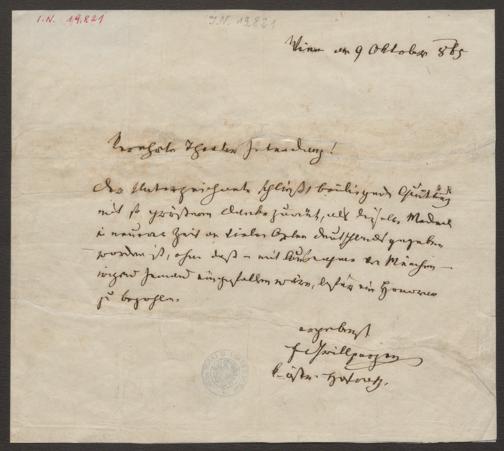 I.N. 19.821
I.N. 19821
Wien am 9 Oktober 865
Verehrte Theater Intendanz!
Der Unterzeichnete schließt beiliegende Quittung
mit so größerem Danke zurück, als dieselbe Medea
in neuerer Zeit an vielen Orten Deutschlands gegeben
worden ist, ohne daß – mit Ausnahme der Münchn–
irgend Jemand eingefallen wäre, dafür ein Honorar
zu bezahlen.
ergebenst
Grillparzer
k. östr. Hofrath.